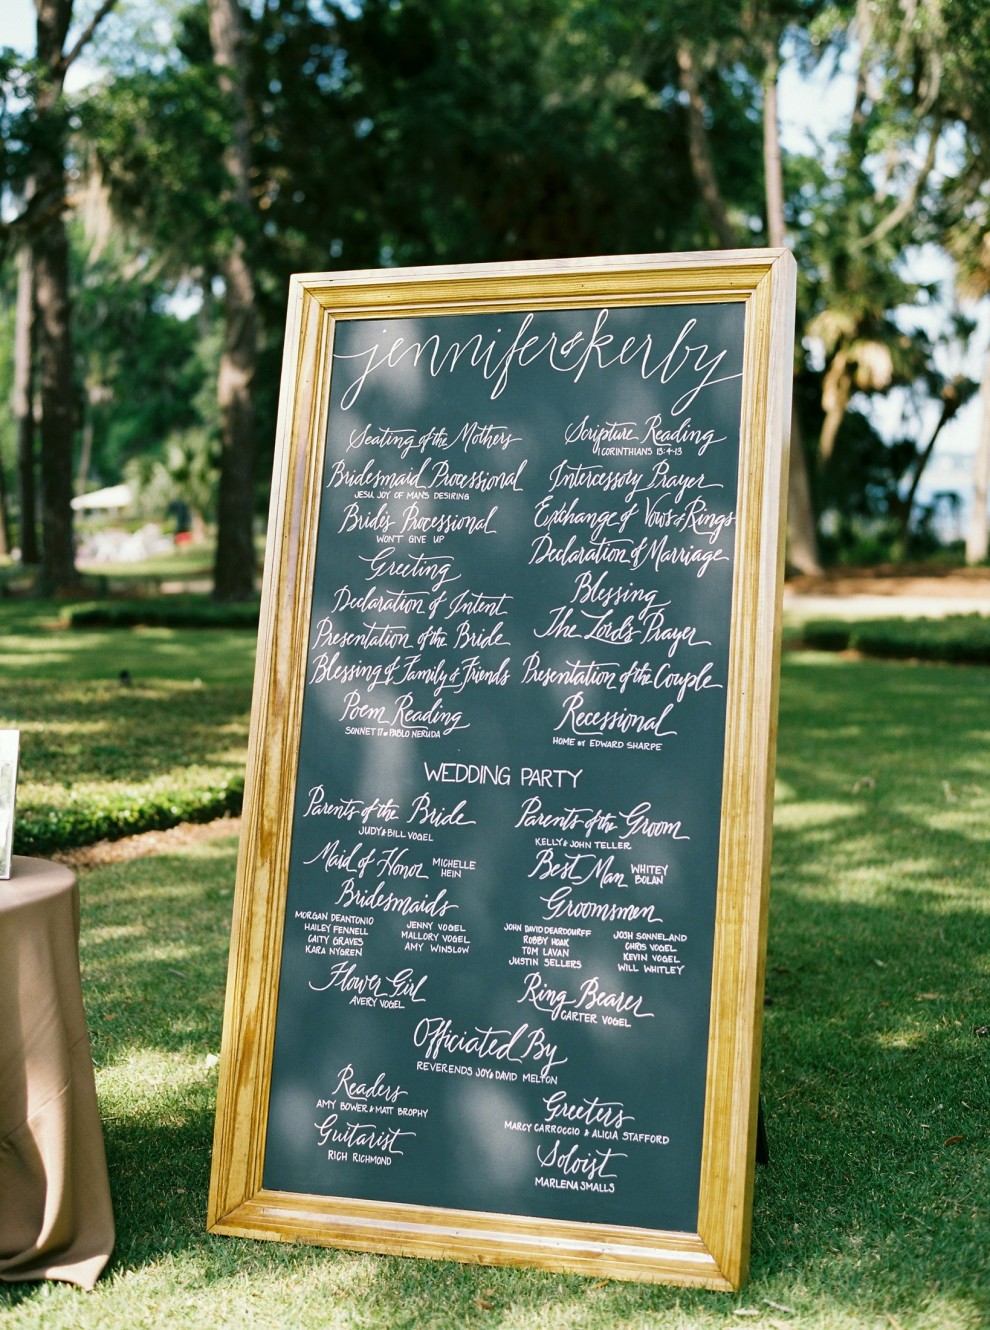 jennifer & kerby
Seating of the Mothers
Bridesmaid Processional
JESU, JOY OF MAN'S DESIRING
Bride's Processional
WON'T GIVE UP
Greeting
Declaration of Intent
Presentation of the Bride
Blessing of Family & Friends
Poem Reading
SONNET 17 BY PABLO NERUDA
Scripture Reading
1 CORINTHIANS 13:4-13
Intercessory Prayer
Exchange of Vows & Rings
Declaration of Marriage
Blessing
The Lord's Prayer
Presentation of the Couple
Recessional
HOME BY EDWARD SHARPE
WEDDING PARTY
Parents of the Bride
JUDY & BILL VOGEL
Maid of Honor MICHELLE
HEIN
Bridesmaids
MORGAN DEANTONIO
HAILEY FENNELL
CAITY GRAVES
KARA NYGREN
JENNY VOGEL
MALLORY VOGEL
AMY WINSLOW
Flower Girl
AVERY VOGEL
Parents of the Groom
KELLY & JOHN TELLER
Best Man WHITEY
BOLAN
Groomsmen
JOHN DAVID DEARDOURFF
ROBBY HOAK
TOM LAVAN
JUSTIN SELLERS
JOSH SONNELAND
CHRIS VOGEL
KEVIN VOGEL
WILL WHITLEY
Ring Bearer
CARTER VOGEL
Officiated By
REVERENDS JOY & DAVID MELTON
Readers
AMY BOWER & MATT BROPHY
Guitarist
RICH RICHMOND
Greeters
MARCY CARROCCIO & ALICIA STAFFORD
Soloist
MARLENA SMALLS